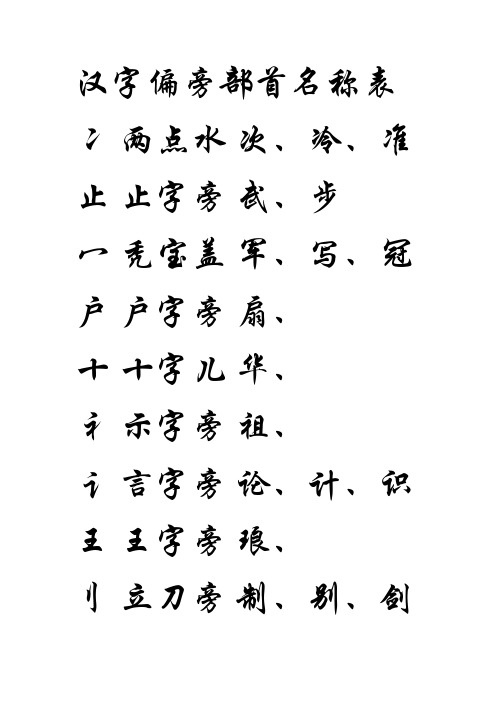 汉字偏旁部首名称表
冫 两点水 次、冷、准
止 止字旁 武、步
冖 秃宝盖 军、写、冠
户 户字旁 扇、
十 十字儿 华、
礻 示字旁 祖、
讠 言字旁 论、计、识
王 王字旁 琅、
刂 立刀旁 制、别、剑